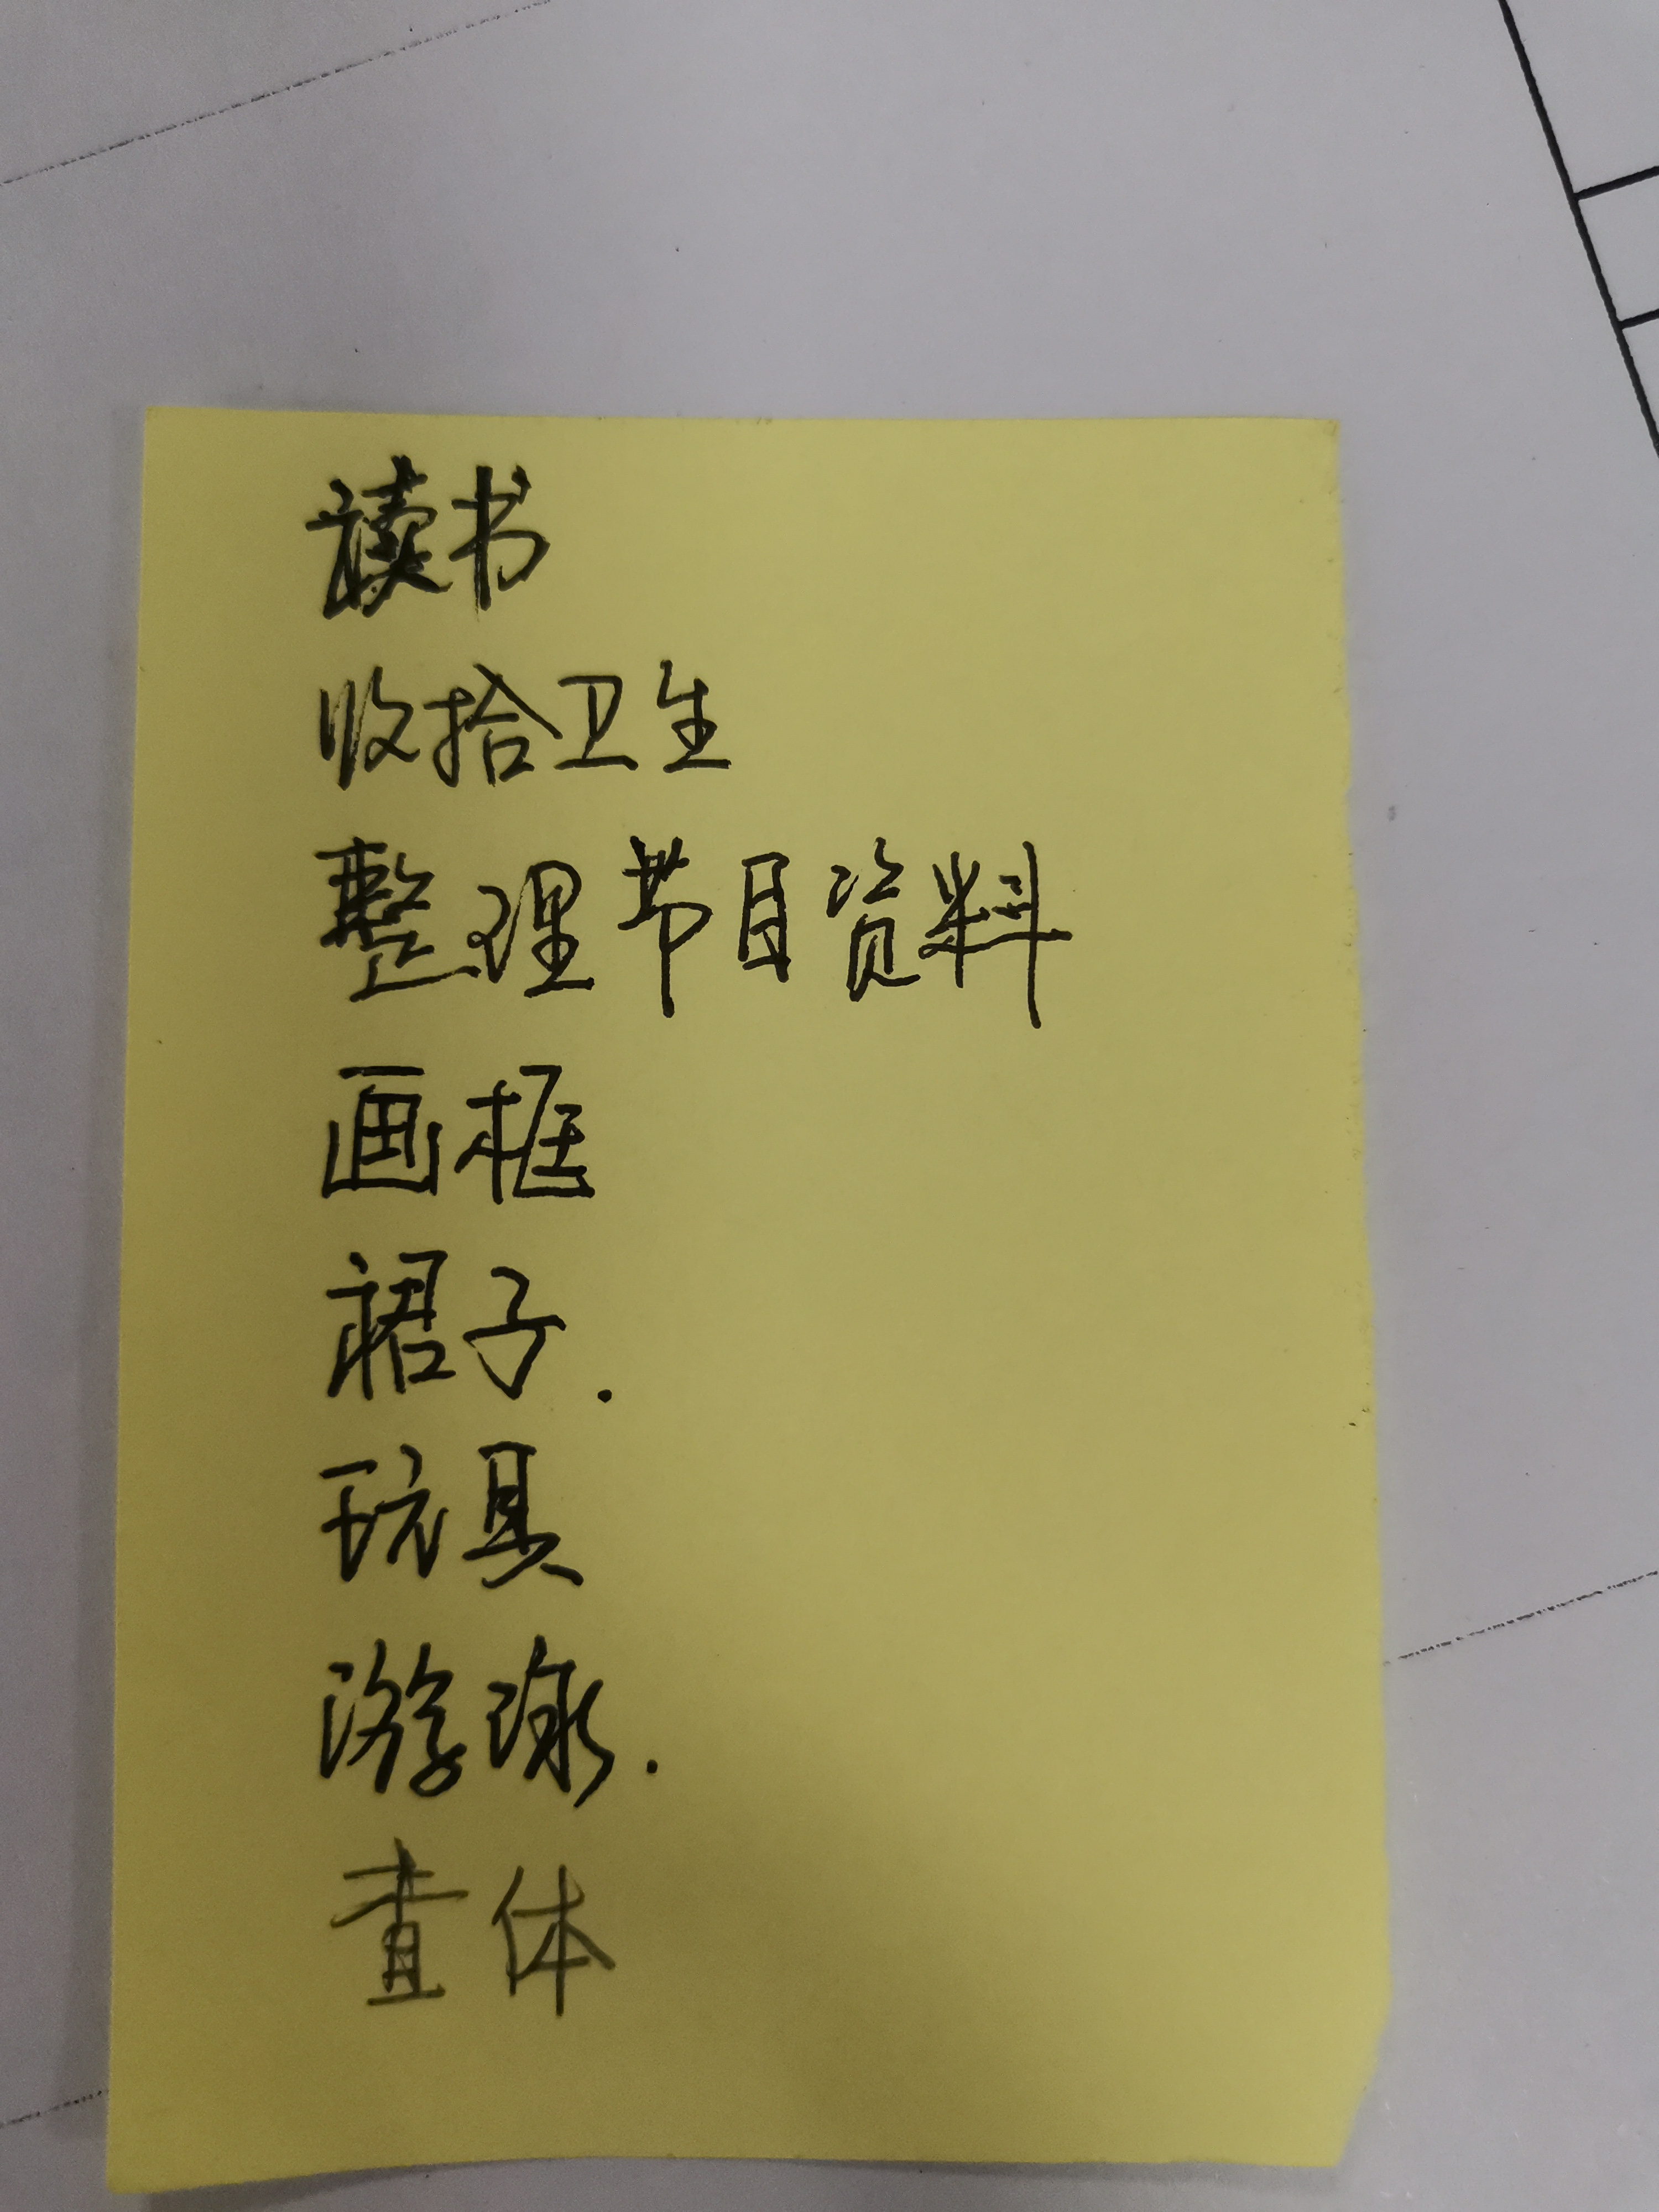 读书
收拾卫生
整理节目资料
画框
裙子.
玩具
游泳.
查体